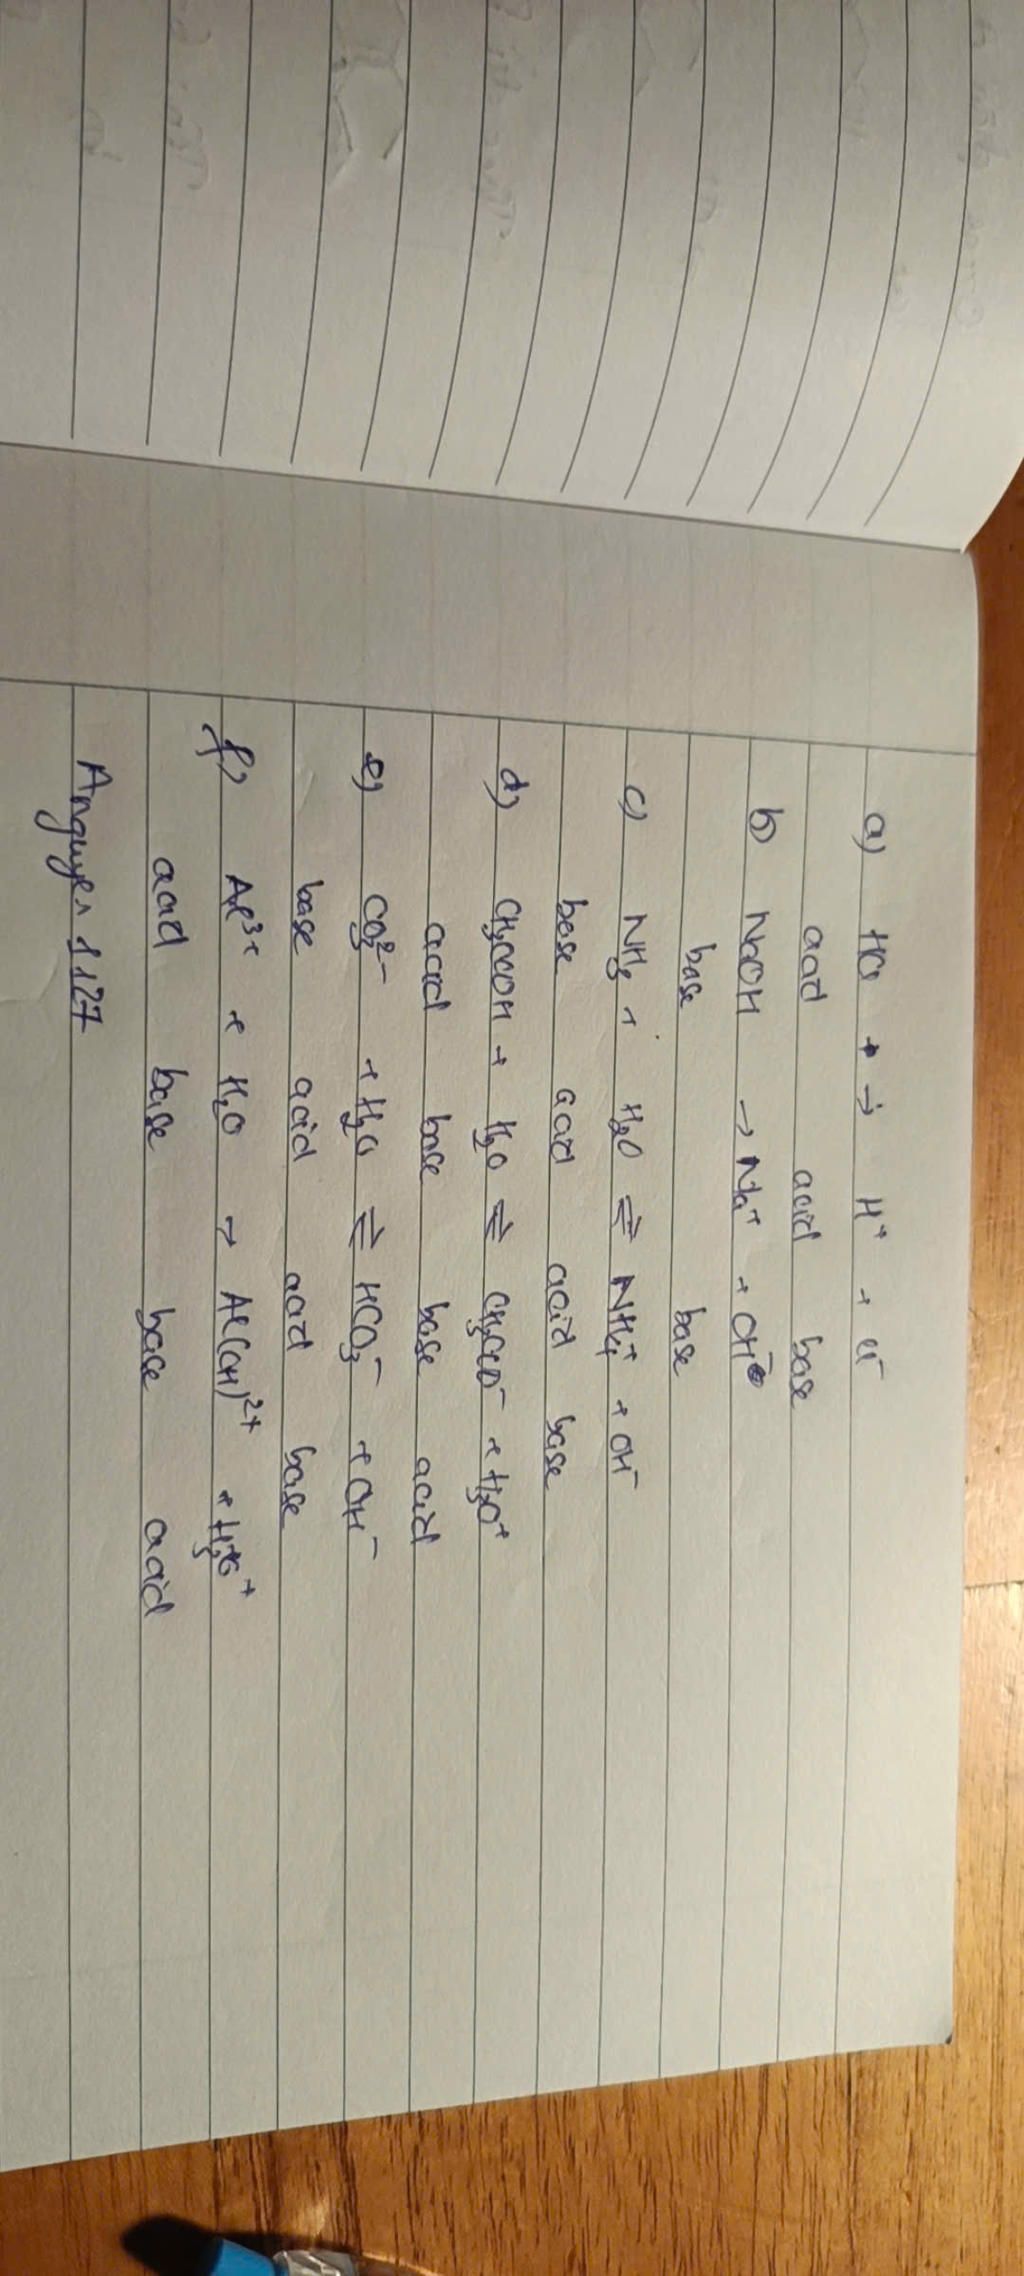 a) HCl → H⁺ + Cl⁻
acid acid base
b) NaOH → Na⁺ + OH⁻
base base
c) NH₃ + H₂O ⇌ NH₄⁺ + OH⁻
base acid acid base
d) CH₃COOH + H₂O ⇌ CH₃COO⁻ + H₃O⁺
acid base base acid
e) CO₃²⁻ + H₂O ⇌ HCO₃⁻ + OH⁻
base acid acid base
f) Al³⁺ + H₂O → Al(OH)²⁺ + H₃O⁺
acid base base acid
Anguyen1127